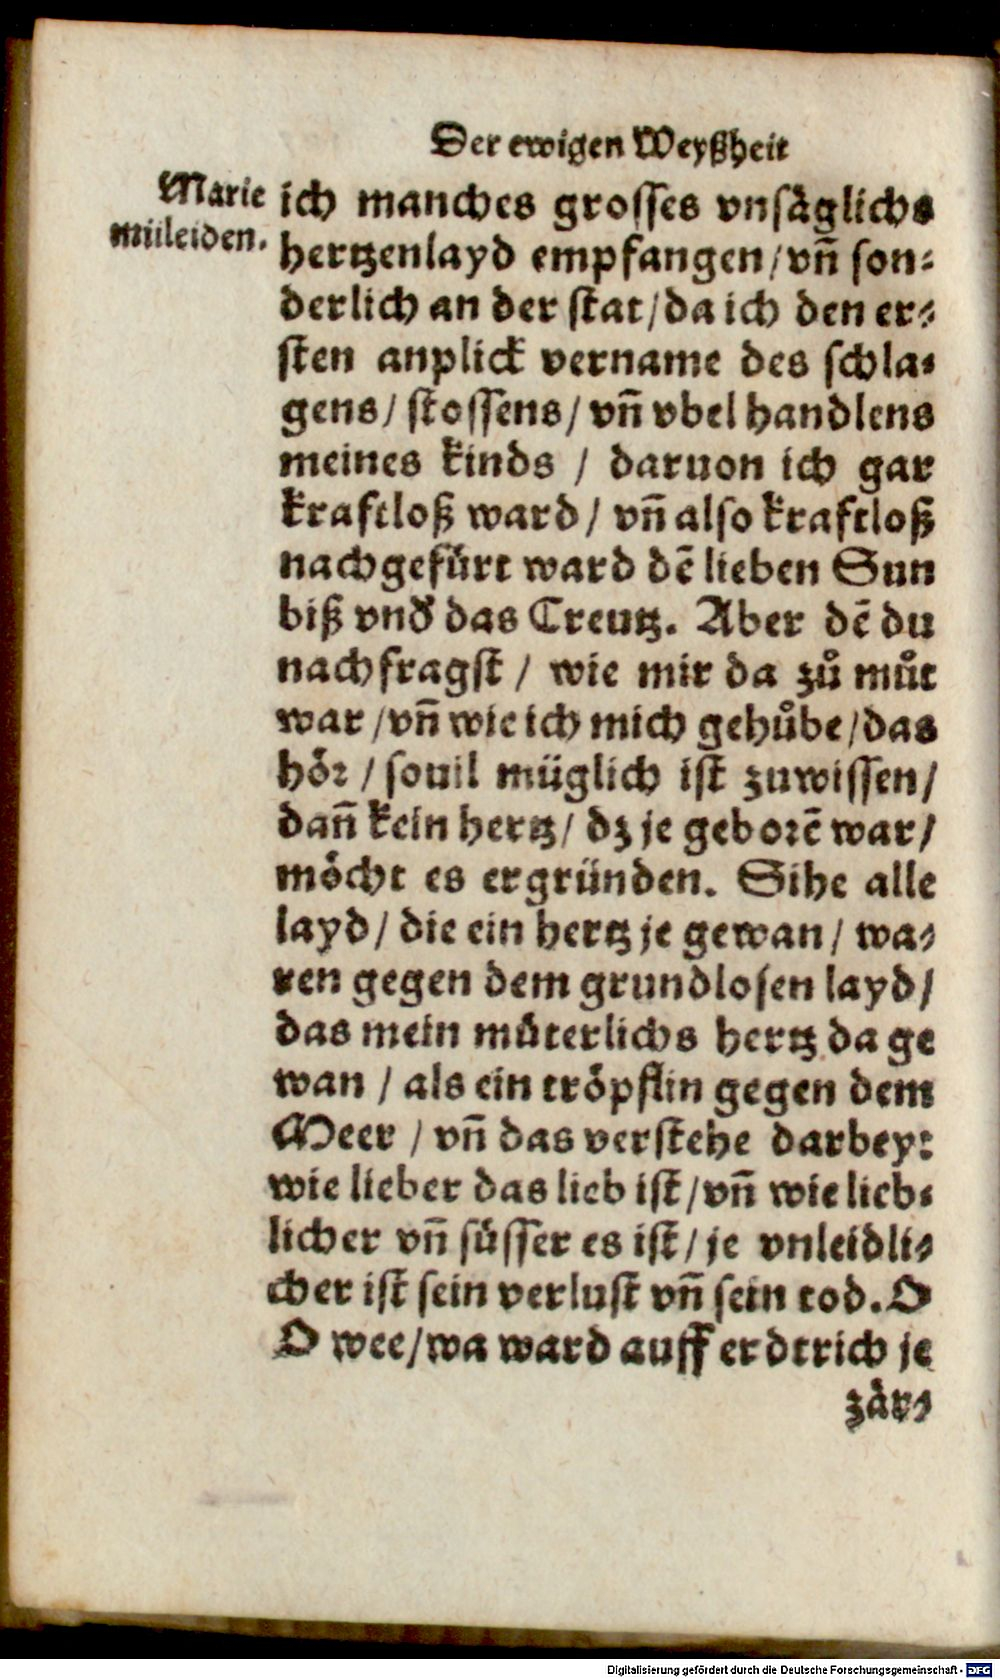 Der ewigen Weyßheit
Marie
mitleiden.
ich manches grosses vnsäglichs
hertzenlayd empfangen/vñ son-
derlich an der stat/da ich den er-
sten anplick vername des schla-
gens/ stossens/ vñ vbel handlens
meines kinds / daruon ich gar
kraftloß ward/ vñ also kraftloß
nachgefürt ward dē lieben Sun
biß vnđ das Creutz. Aber dē du
nachfragst / wie mir da zů můt
war/vñ wie ich mich gehůbe/das
hör / souil müglich ist zuwissen/
dañ kein hertz/ dz je geborē war/
möcht es ergründen. Sihe alle
layd/ die ein hertz je gewan/ wa-
ren gegen dem grundlosen layd/
das mein můterlichs hertz da ge
wan / als ein tröpflin gegen dem
Meer / vñ das verstehe darbey:
wie lieber das lieb ist/vñ wie lieb-
licher vñ süsser es ist/ je vnleidli-
cher ist sein verlust vñ sein tod. O
O wee/wa ward auff erdtrich je
zär-
Digitalisierung gefördert durch die Deutsche Forschungsgemeinschaft - DFG